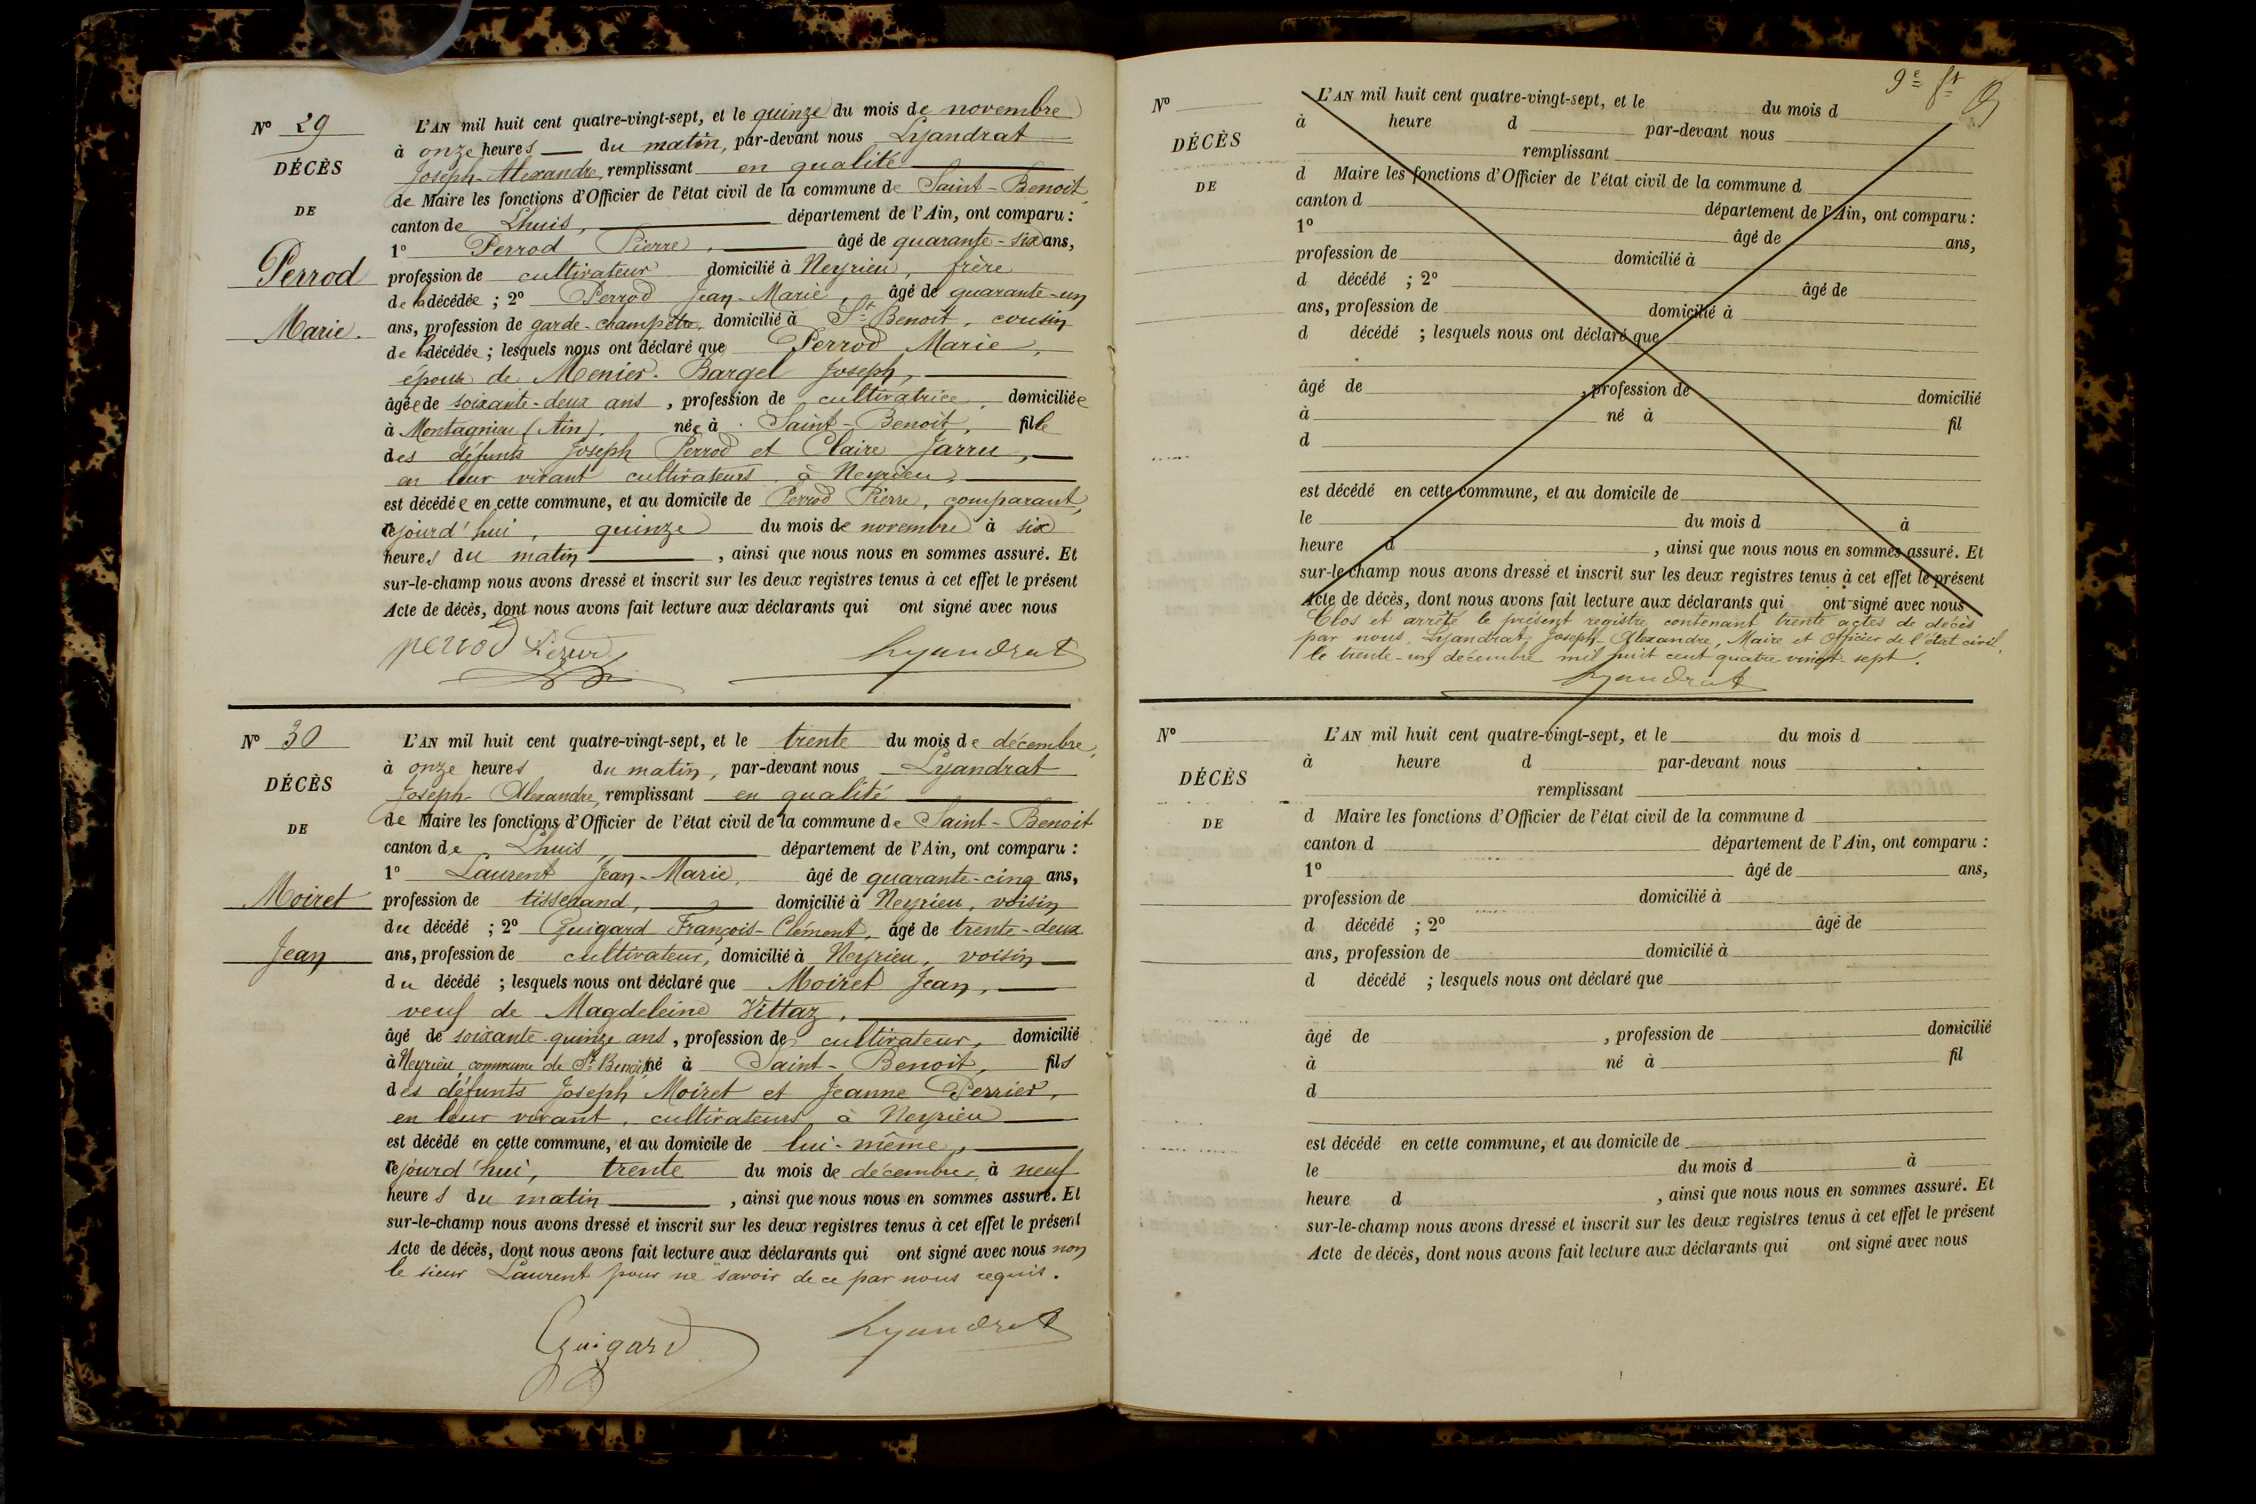 Nº 29
DÉCÈS
DE
Perrod
Marie.
L'AN mil huit cent quatre-vingt-sept, et le quinze du mois de novembre
à onze heures du matin, par-devant nous Lyandrat
Joseph-Alexandre, remplissant en qualité
de Maire les fonctions d'Officier de l'état civil de la commune de Saint-Benoit,
canton de Lhuis, département de l'Ain, ont comparu :
1º Perrod Pierre, âgé de quarante-six ans,
profession de cultivateur domicilié à Neyrieu, frère
de la décédée ; 2º Perrod Jean-Marie, âgé de quarante-un
ans, profession de garde-champêtre, domicilié à St Benoit, cousin
de la décédée ; lesquels nous ont déclaré que Perrod Marie,
épouse de Menier-Bargel Joseph,
âgée de soixante-deux ans, profession de cultivatrice, domiciliée
à Montagnieu (Ain), née à Saint-Benoit, fille
des défunts Joseph Perrod et Claire Jarru,
en leur vivant cultivateurs à Neyrieu,
est décédée en cette commune, et au domicile de Perrod Pierre, comparant,
cejourd'hui, quinze du mois de novembre à six
heures du matin, ainsi que nous nous en sommes assuré. Et
sur-le-champ nous avons dressé et inscrit sur les deux registres tenus à cet effet le présent
Acte de décès, dont nous avons fait lecture aux déclarants qui ont signé avec nous
perrod Lyandrat
Nº 30
DÉCÈS
DE
Moiret
Jean
L'AN mil huit cent quatre-vingt-sept, et le trente du mois de décembre,
à onze heures du matin, par-devant nous Lyandrat
Joseph-Alexandre, remplissant en qualité
de Maire les fonctions d'Officier de l'état civil de la commune de Saint-Benoit
canton de Lhuis, département de l'Ain, ont comparu :
1º Laurent Jean-Marie, âgé de quarante-cinq ans,
profession de tisserand, domicilié à Neyrieu, voisin
du décédé ; 2º Guigard François-Clément, âgé de trente-deux
ans, profession de cultivateur, domicilié à Neyrieu, voisin
du décédé ; lesquels nous ont déclaré que Moiret Jean,
veuf de Magdeleine Vittaz,
âgé de soixante-quinze ans, profession de cultivateur, domicilié
à Neyrieu, commune de St Benoit, né à Saint-Benoit, fils
des défunts Joseph Moiret et Jeanne Perrier,
en leur vivant, cultivateurs à Neyrieu
est décédé en cette commune, et au domicile de lui-même,
cejourd'hui, trente du mois de décembre, à neuf
heures du matin, ainsi que nous nous en sommes assuré. Et
sur-le-champ nous avons dressé et inscrit sur les deux registres tenus à cet effet le présent
Acte de décès, dont nous avons fait lecture aux déclarants qui ont signé avec nous non
le sieur Laurent pour ne savoir de ce par nous requis.
Guigard Lyandrat
9e ft
Nº
DÉCÈS
DE
L'AN mil huit cent quatre-vingt-sept, et le du mois d
à heure d par-devant nous
remplissant
d Maire les fonctions d'Officier de l'état civil de la commune d
canton d département de l'Ain, ont comparu :
1º âgé de ans,
profession de domicilié à
d décédé ; 2º âgé de
ans, profession de domicilié à
d décédé ; lesquels nous ont déclaré que
âgé de , profession de domicilié
à né à fil
d
est décédé en cette commune, et au domicile de
le du mois d à
heure d , ainsi que nous nous en sommes assuré. Et
sur-le-champ nous avons dressé et inscrit sur les deux registres tenus à cet effet le présent
Acte de décès, dont nous avons fait lecture aux déclarants qui ont signé avec nous
Clos et arrêté le présent registre contenant trente actes de décès
par nous, Lyandrat, Joseph-Alexandre, Maire et Officier de l'état civil,
le trente-un décembre mil huit cent quatre vingt sept.
Lyandrat
Nº
DÉCÈS
DE
L'AN mil huit cent quatre-vingt-sept, et le du mois d
à heure d par-devant nous
remplissant
d Maire les fonctions d'Officier de l'état civil de la commune d
canton d département de l'Ain, ont comparu :
1º âgé de ans,
profession de domicilié à
d décédé ; 2º âgé de
ans, profession de domicilié à
d décédé ; lesquels nous ont déclaré que
âgé de , profession de domicilié
à né à fil
d
est décédé en cette commune, et au domicile de
le du mois d à
heure d , ainsi que nous nous en sommes assuré. Et
sur-le-champ nous avons dressé et inscrit sur les deux registres tenus à cet effet le présent
Acte de décès, dont nous avons fait lecture aux déclarants qui ont signé avec nous